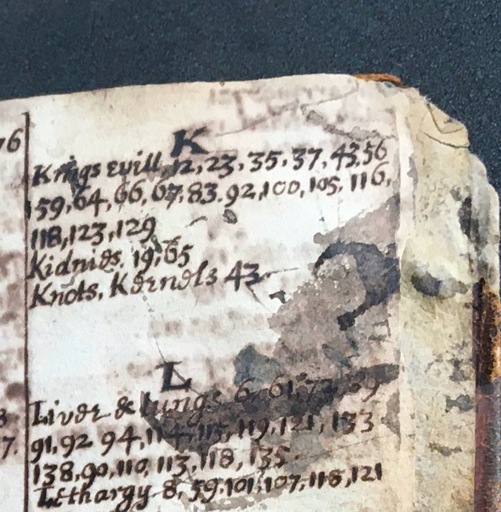 76
K
Kings evill, 12, 23, 35, 37, 43, 56
59, 64, 66, 67, 83, 92, 100, 105, 116,
118, 123, 129
Kidnies, 19, 65
Knots, Kernels 43.
L
Liver & lungs 6, 61, 73,
91, 92 94, 114, 115, 119, 121, 133
138, 90, 110, 113, 118, 135.
7.
Lethargy 8, 59, 101, 107, 118, 121